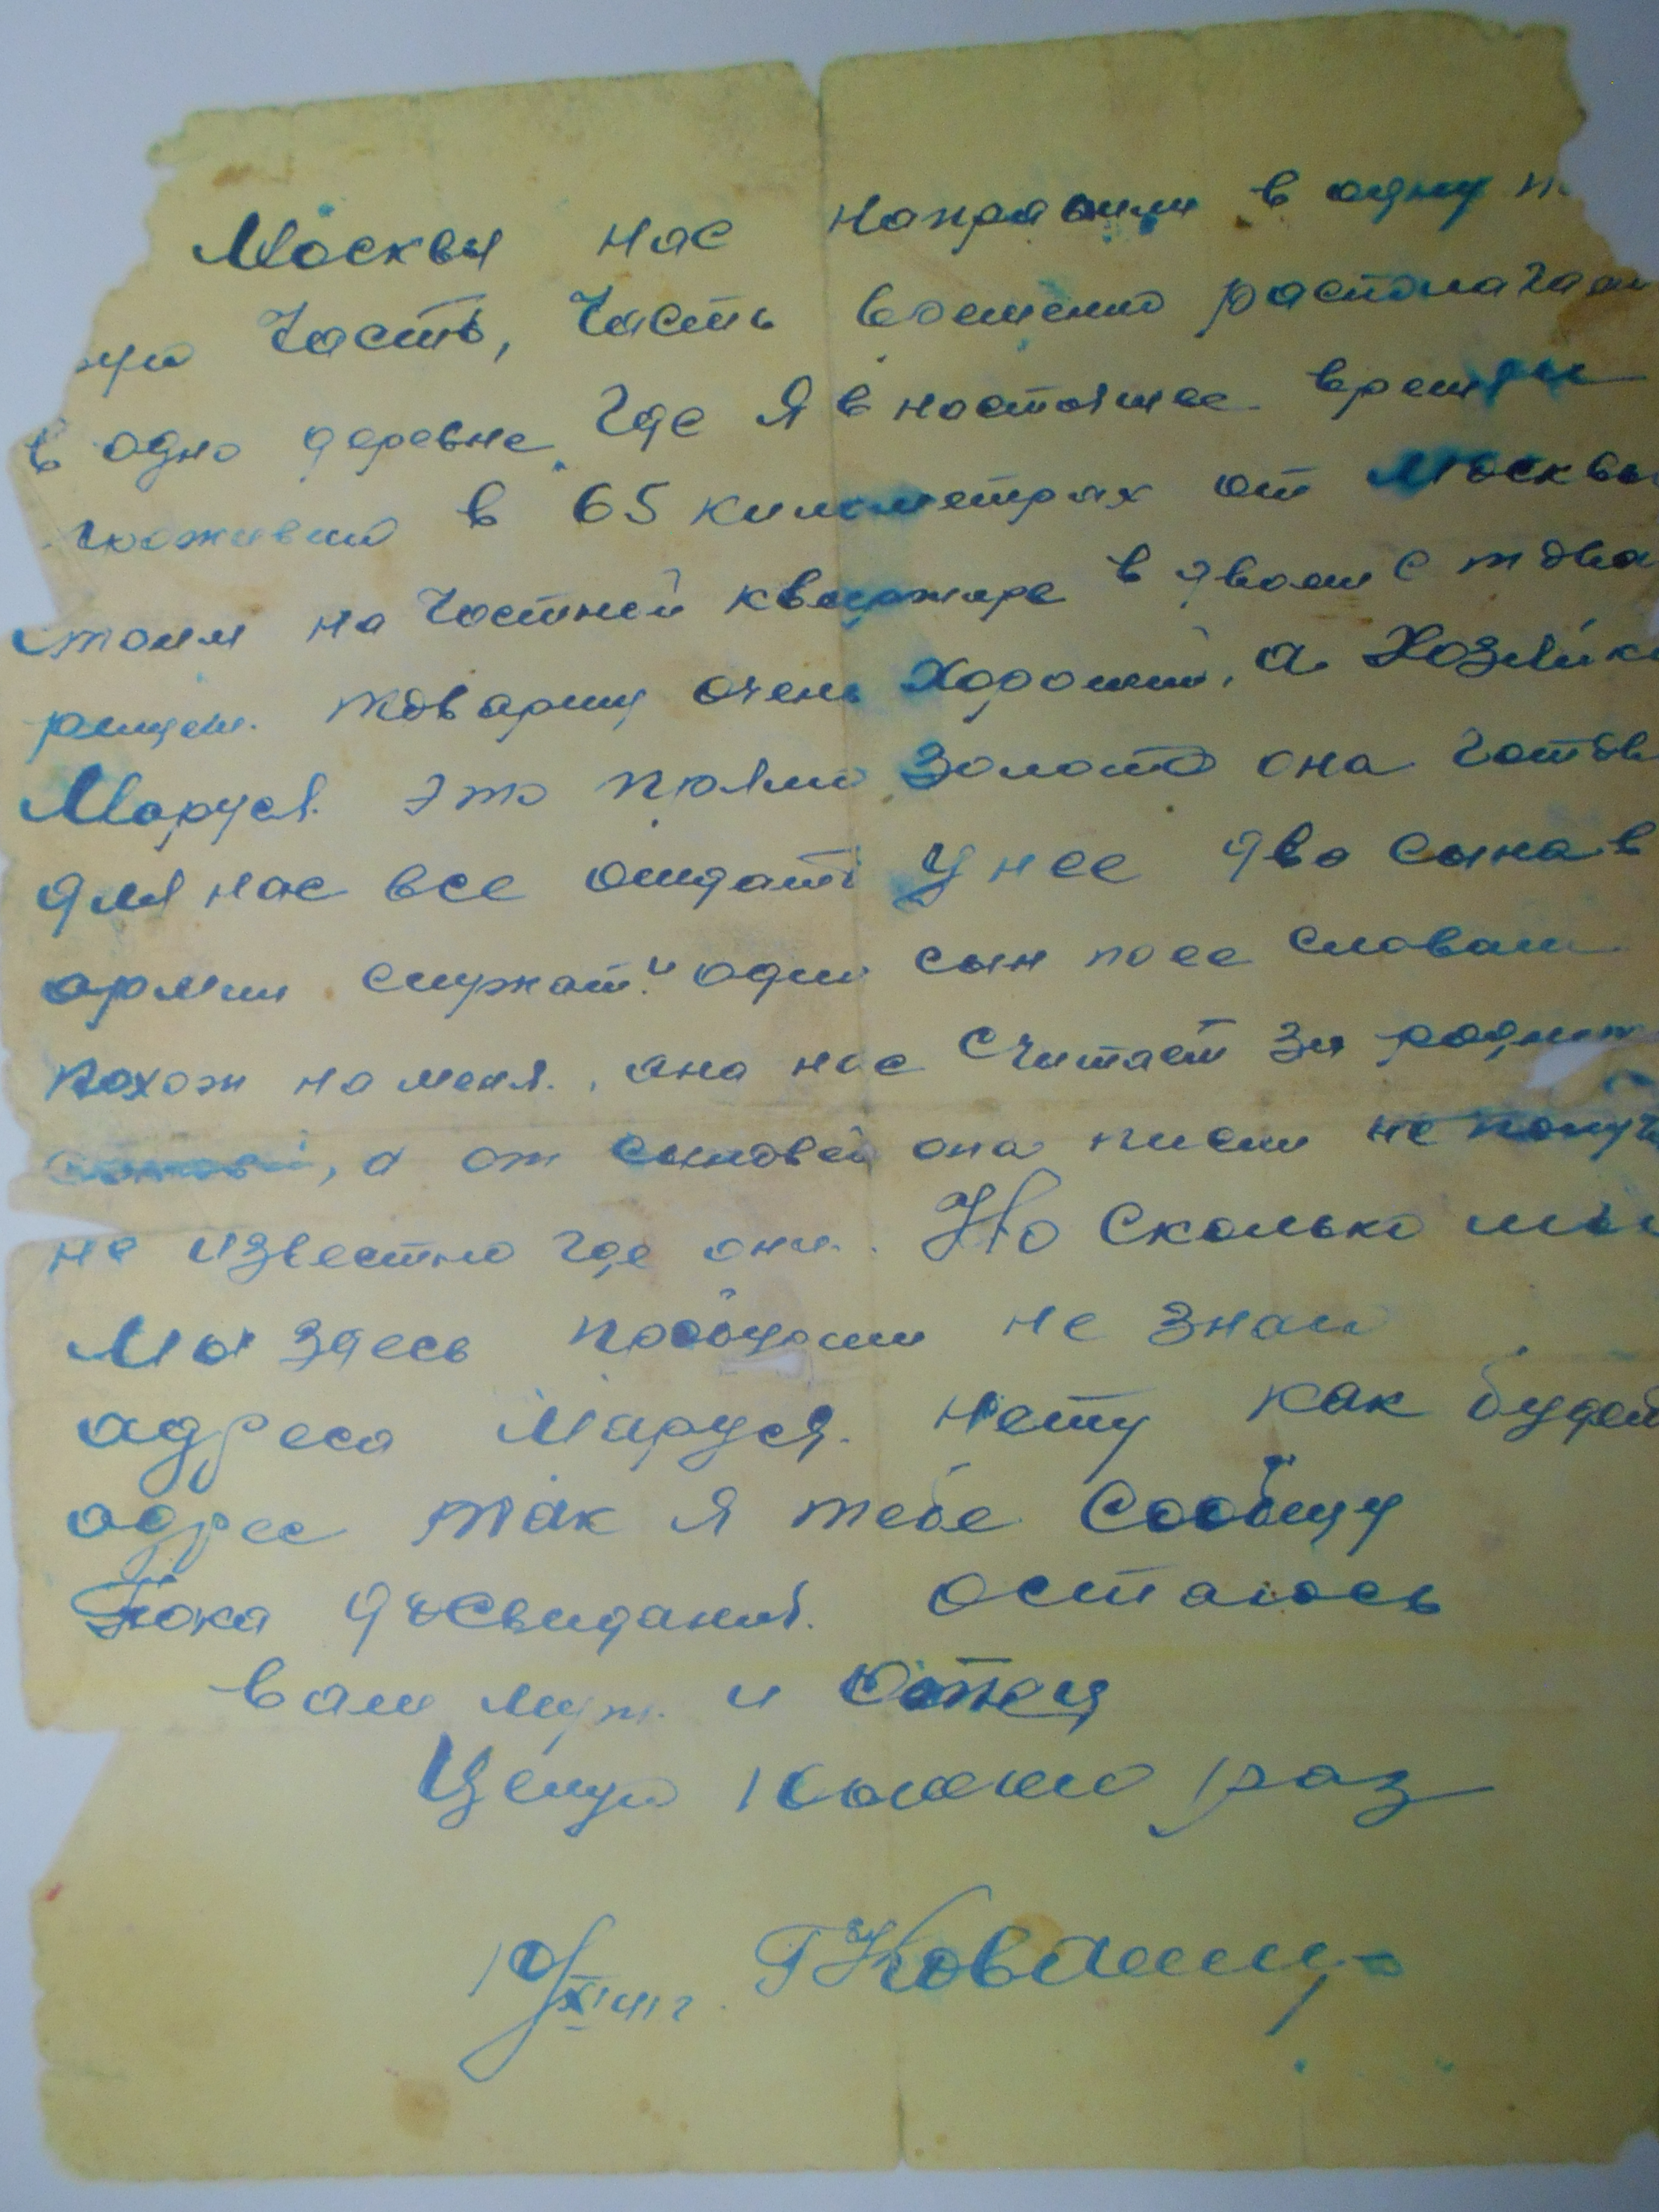 Москвы нас направили в одну
часть, часть временно располагаем
в одно деревне где я в настоящее время
проживаю в 65 километрах от Москвы
стоим на частной квартире в двоем с това
рищем. товарищ очень хороший, а хозяйк
Маруся это прямо золото она готов
для нас все отдать У нее два сына в
армии служат. и один сын по ее словам
похож на меня. она нас считает за родных
а от сыновей она писем не получ
не известно где они. Но сколько мы
мы здесь пробудим не знаю
адреса Маруся. нету как будет
адрес так я тебе сообщу
Пока досвидания. остаюсь
ваш муж. и отец
Целую раз